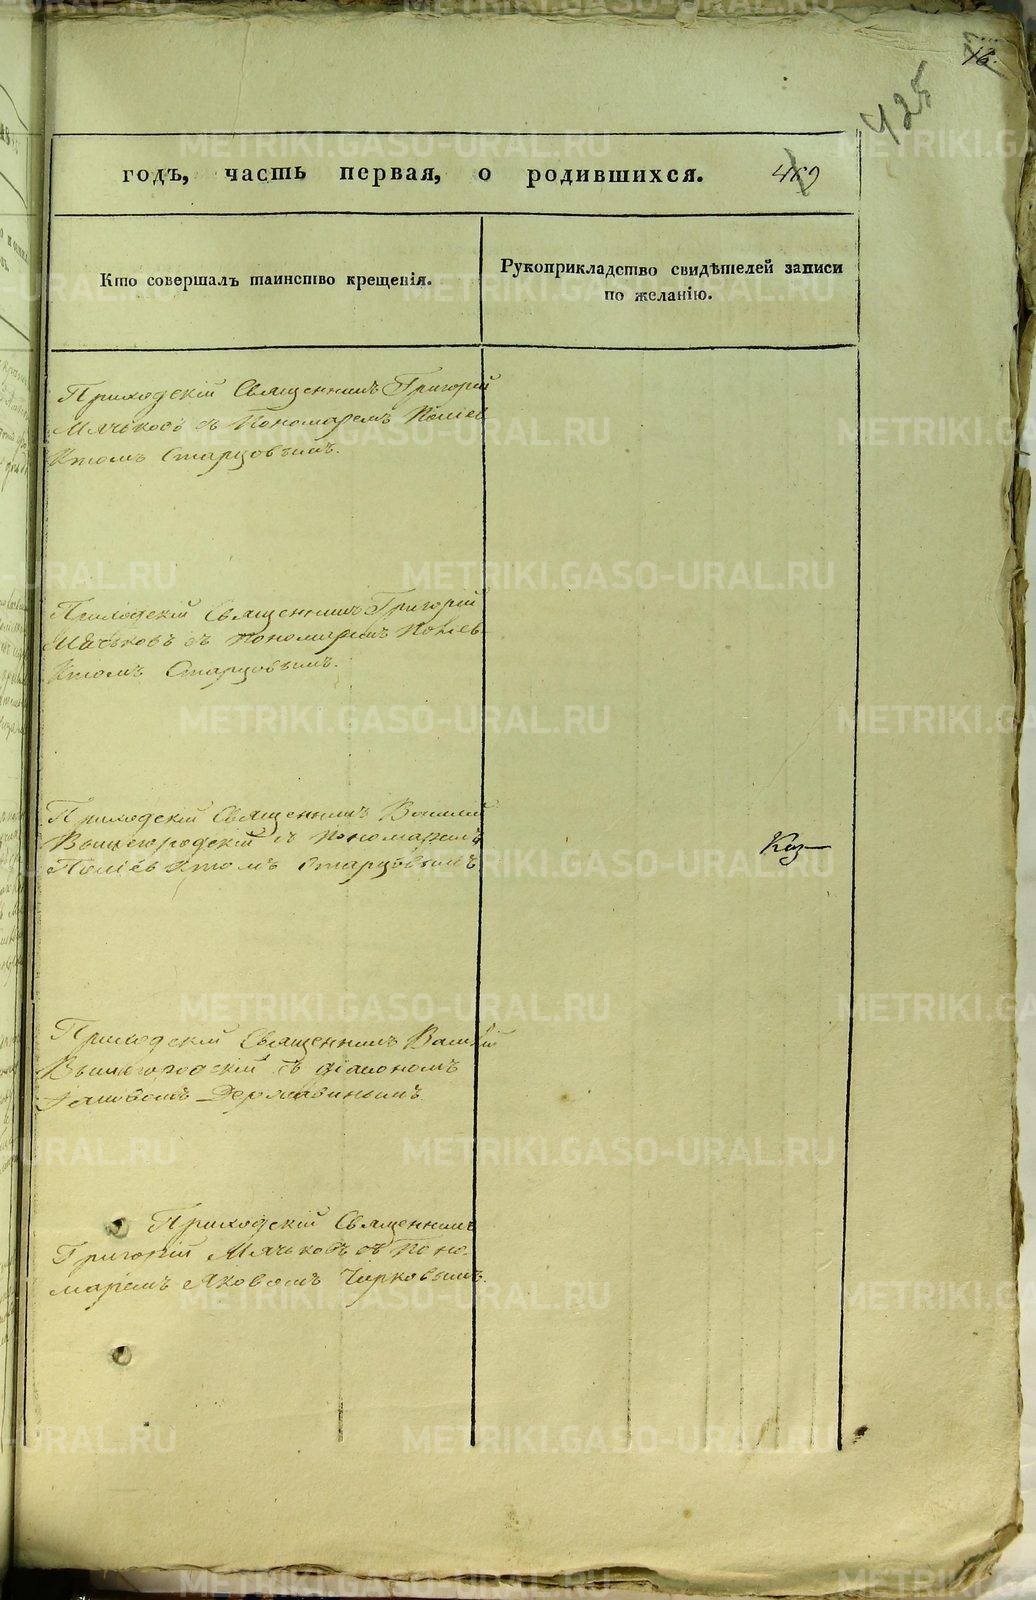 16.
425
годъ, часть первая, о родившихся. 469
Кто совершалъ таинство крещенія.
Рукоприкладство свидѣтелей записи
по желанію.
Приходскій Священникъ Григорій
Мячьковъ съ Пономаремъ Поліев
ктомъ Старцовымъ.
Приходскій Священникъ Григорій
Мячьковъ съ Пономаремъ Поліев
ктомъ Старцовымъ.
Приходскій Священникъ Василій
Вышегородскій съ Пономаремъ
Поліевктомъ Старцовымъ
Приходскій Священникъ Василій
Вышегородскій съ діакономъ
Іаковомъ Державинымъ
Приходскій Священникъ
Григорій Мячьковъ съ Поно
маремъ Яковомъ Чирковымъ.
METRIKI.GASO-URAL.RU